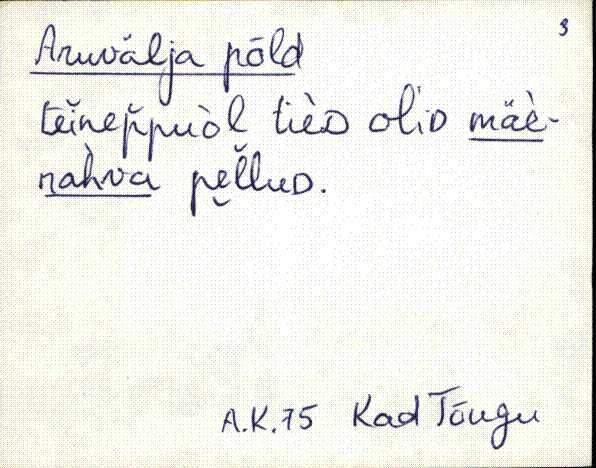 3
Aruvälja põld
tĕĭnep̆puòl tièᴅ oliᴅ mäè-
nàhvа pe̮l̆luᴅ.
A.K.75 Kad Tõugu